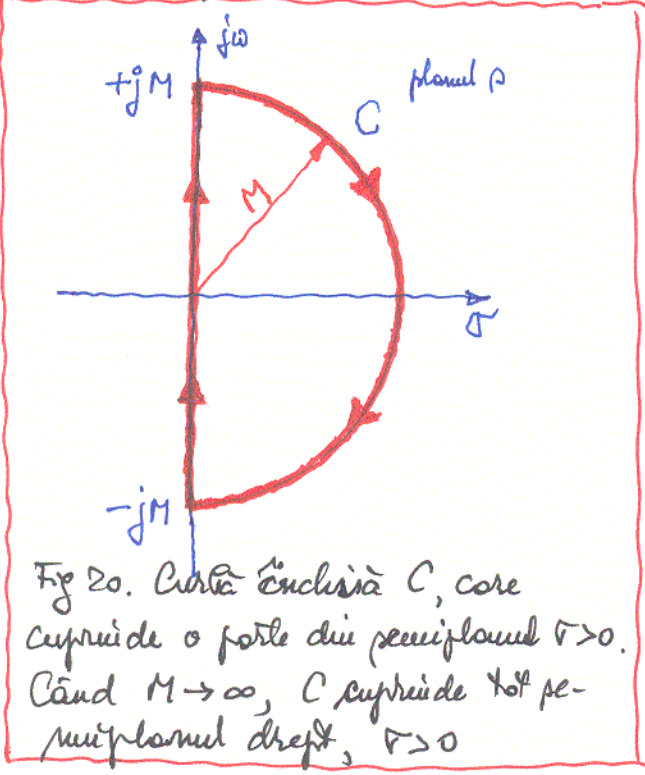 jω
+jM
planul s
C
M
σ
-jM
Fig 20. Curbă închisă C, care
cuprinde o parte din semiplanul σ>0.
Când M→∞, C cuprinde tot se-
miplanul drept, σ>0